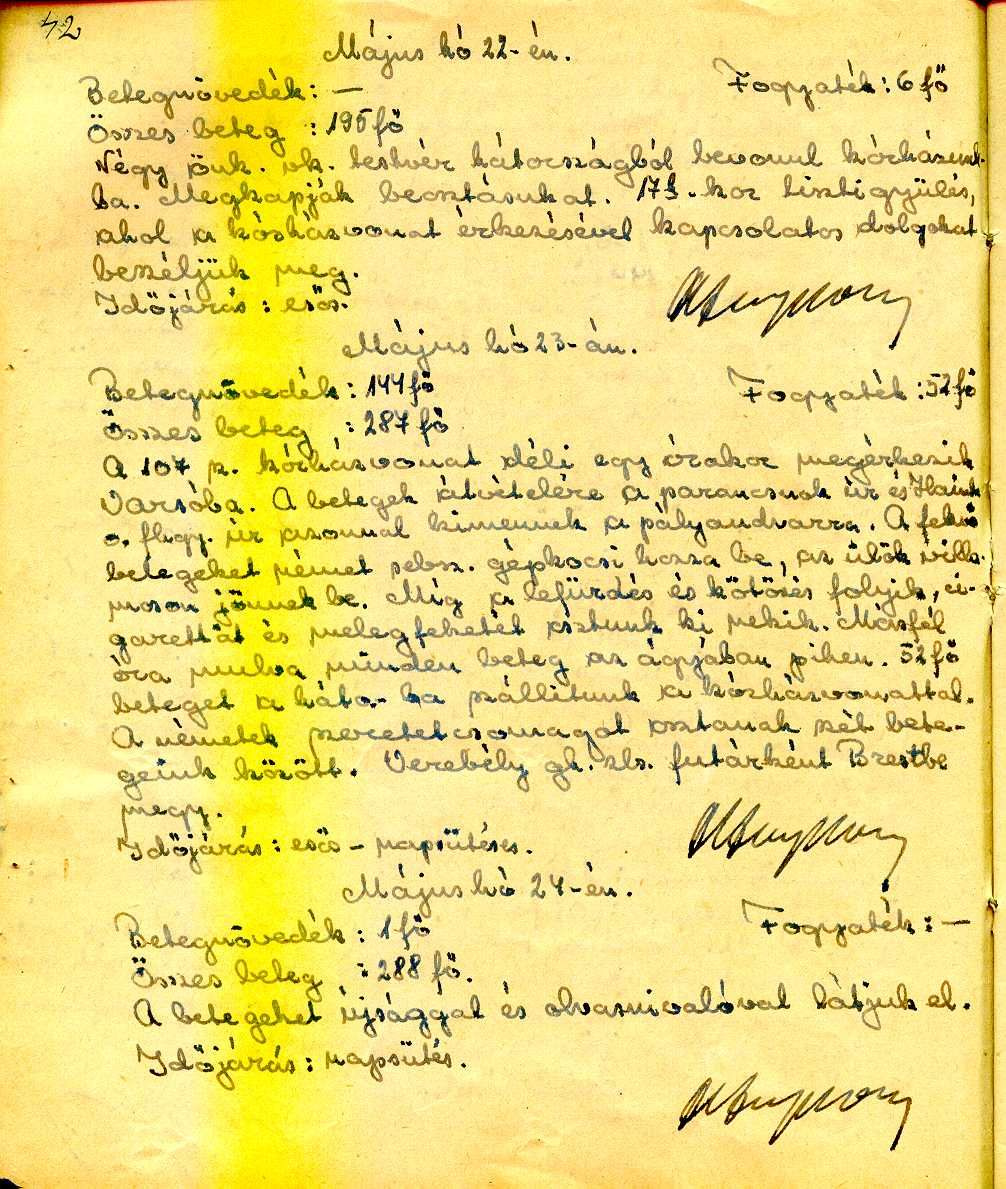 42
Május hó 22-én.
Betegnövedék: — Fogyaték: 6 fő
Összes beteg : 195 fő
Négy önk. vk. testvér hátországból bevonul kórházunk-
ba. Megkapják beosztásukat. 17h.-kor tisztigyülés,
ahol a kórházvonat érkezésével kapcsolatos dolgokat
beszéljük meg.
Időjárás: esős.
Május hó 23-án.
Betegnövedék: 144 fő Fogyaték: 52 fő
Összes beteg : 287 fő
A 107 sz. kórházvonat déli egy órakor megérkezik
Varsóba. A betegek átvételére a parancsnok úr és
o. fhgy. úr azonnal kimennek a pályaudvarra. A fekvő
betegeket német sebsz. gépkocsi hozza be, az ülők villa-
moson jönnek be. Míg a lefürdés és kötözés folyik, ci-
garettát és melegfeketét osztunk ki nekik. Másfél
óra mulva minden beteg az ágyában pihen. 52 fő
beteget a háto.-ba szállitunk a kórházvonattal.
A németek szeretetcsomagot osztanak szét bete-
geink között. Verebély gh. zls. futárként Brestbe
megy.
Időjárás: eső - napsütéses.
Május hó 24-én.
Betegnövedék: 1 fő Fogyaték: —
Összes beteg : 288 fő.
A betegeket újsággal és olvasnivalóval látjuk el.
Időjárás: napsütés.